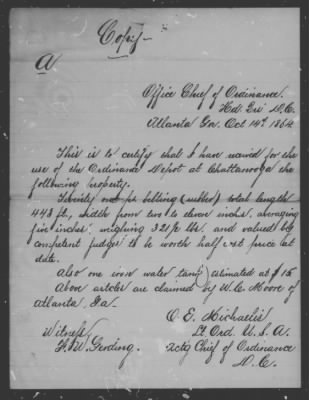 Copy
A
Office Chief of Ordinance.
Hd. Qrs D.C.
Atlanta Ga. Oct 14th 1864
This is to certify that I have received for the
use of the Ordinance Depot at Chattanooga the
following property.
Twenty one ps belting (rubber) total length
443 ft., width from two to eleven inches, averaging
five inches, weighing 321½ lbs. and valued by
competent judges to be worth half net price at
date.
Also one iron water tank estimated at $15
Above articles are claimed by W. C. Moore of
Atlanta, Ga.
O. E. Michaelis
Lt. Ord. U.S.A.
Witness
F. W. Gerding.
Actg Chief of Ordinance
D.C.